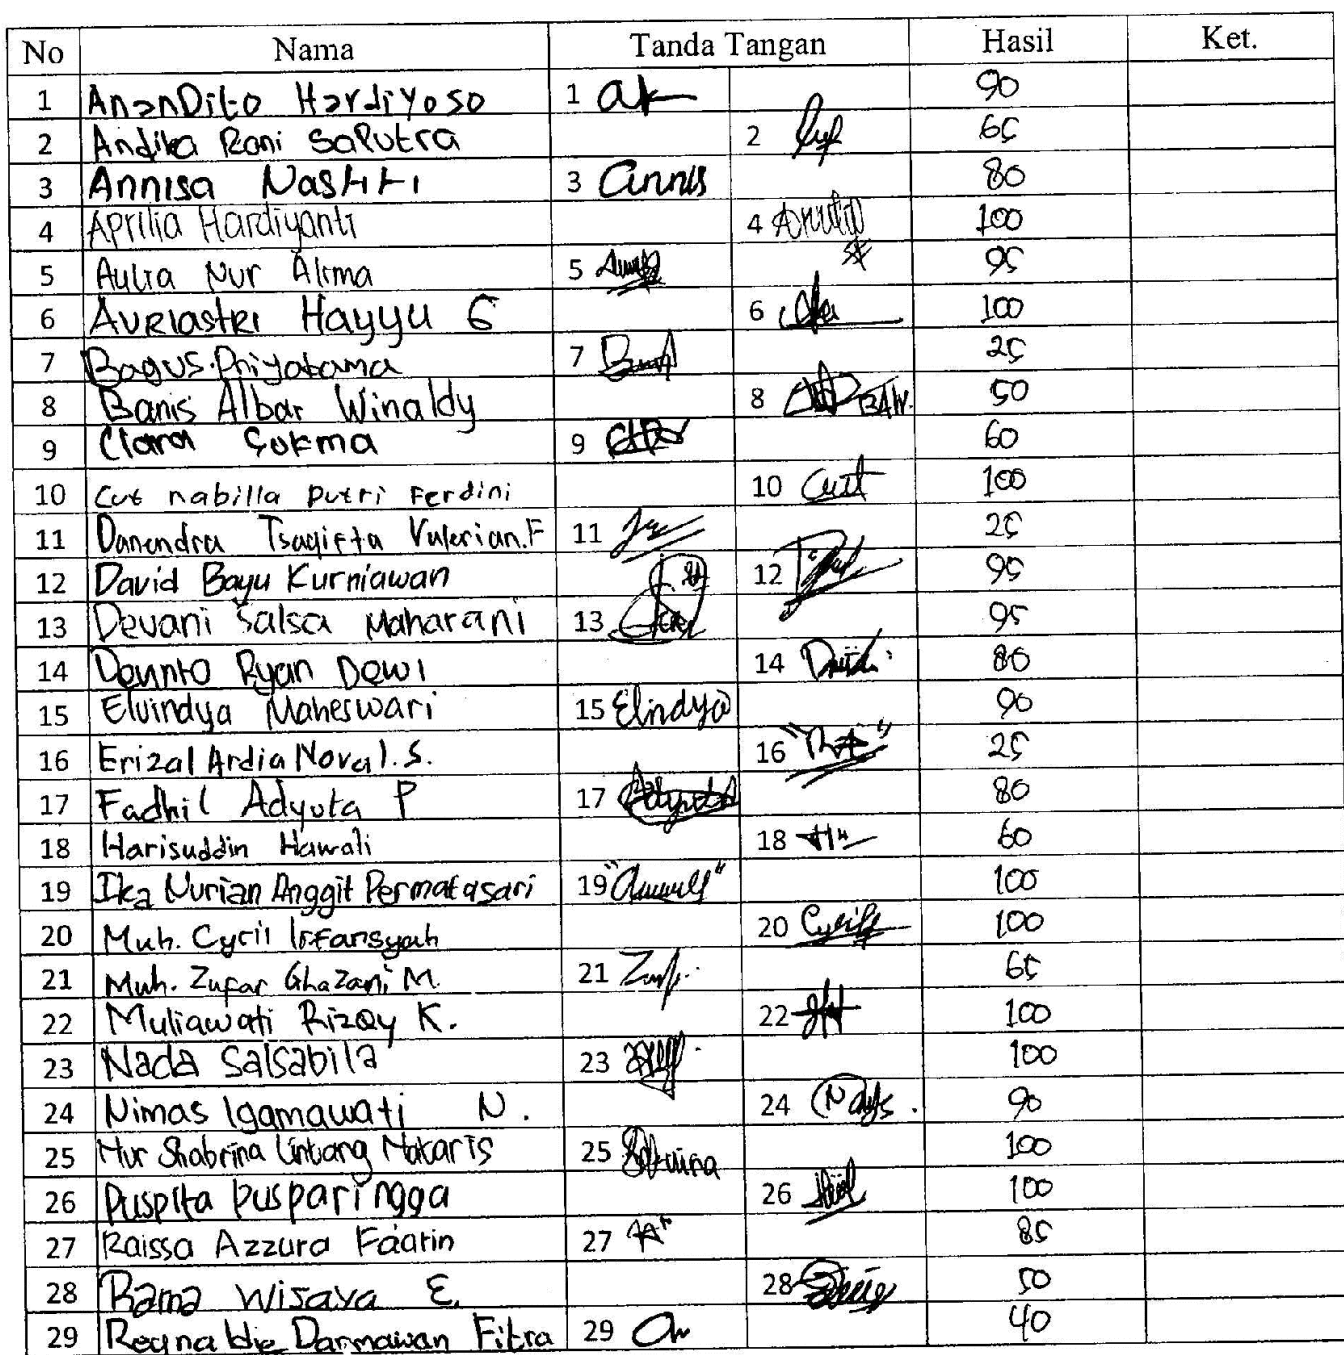 No Nama Tanda Tangan Hasil Ket.
1 AnanDito Hardiyoso 1 90
2 Andika Roni Saputra 2 65
3 Annisa Nastiti 3 Annis 80
4 Aprilia Hardiyanti 4 100
5 Aulia Nur Alima 5 95
6 Avriastri Hayyu G 6 100
7 Bagus Priyatama 7 25
8 Banis Albar Winaldy 8 BAW. 50
9 Clara Sukma 9 60
10 Cut nabilla putri Ferdini 10 Cut 100
11 Danendra Tsaqifta Valerian.F 11 25
12 David Bayu Kurniawan 12 95
13 Devani Salsa Maharani 13 95
14 Ryan Dewi 14 80
15 Elvindya Maheswari 15 Elindya 90
16 Erizal Ardia Noval.S. 16 25
17 Fadhil Adyuta P 17 80
18 Harisuddin Hawali 18 60
19 Ika Nurian Anggit Permatasari 19 100
20 Muh. Cyril Irfansyah 20 100
21 Muh. Zufar Ghazani M. 21 65
22 Muliawati Rizqy K. 22 100
23 Nada Salsabila 23 100
24 Nimas Igamawati N. 24 90
25 Nur Shabrina Lintang Mataris 25 100
26 Puspita pusparingga 26 100
27 Raissa Azzura Faarin 27 85
28 Rama Wijaya E. 28 50
29 Darmawan Fitra 29 40